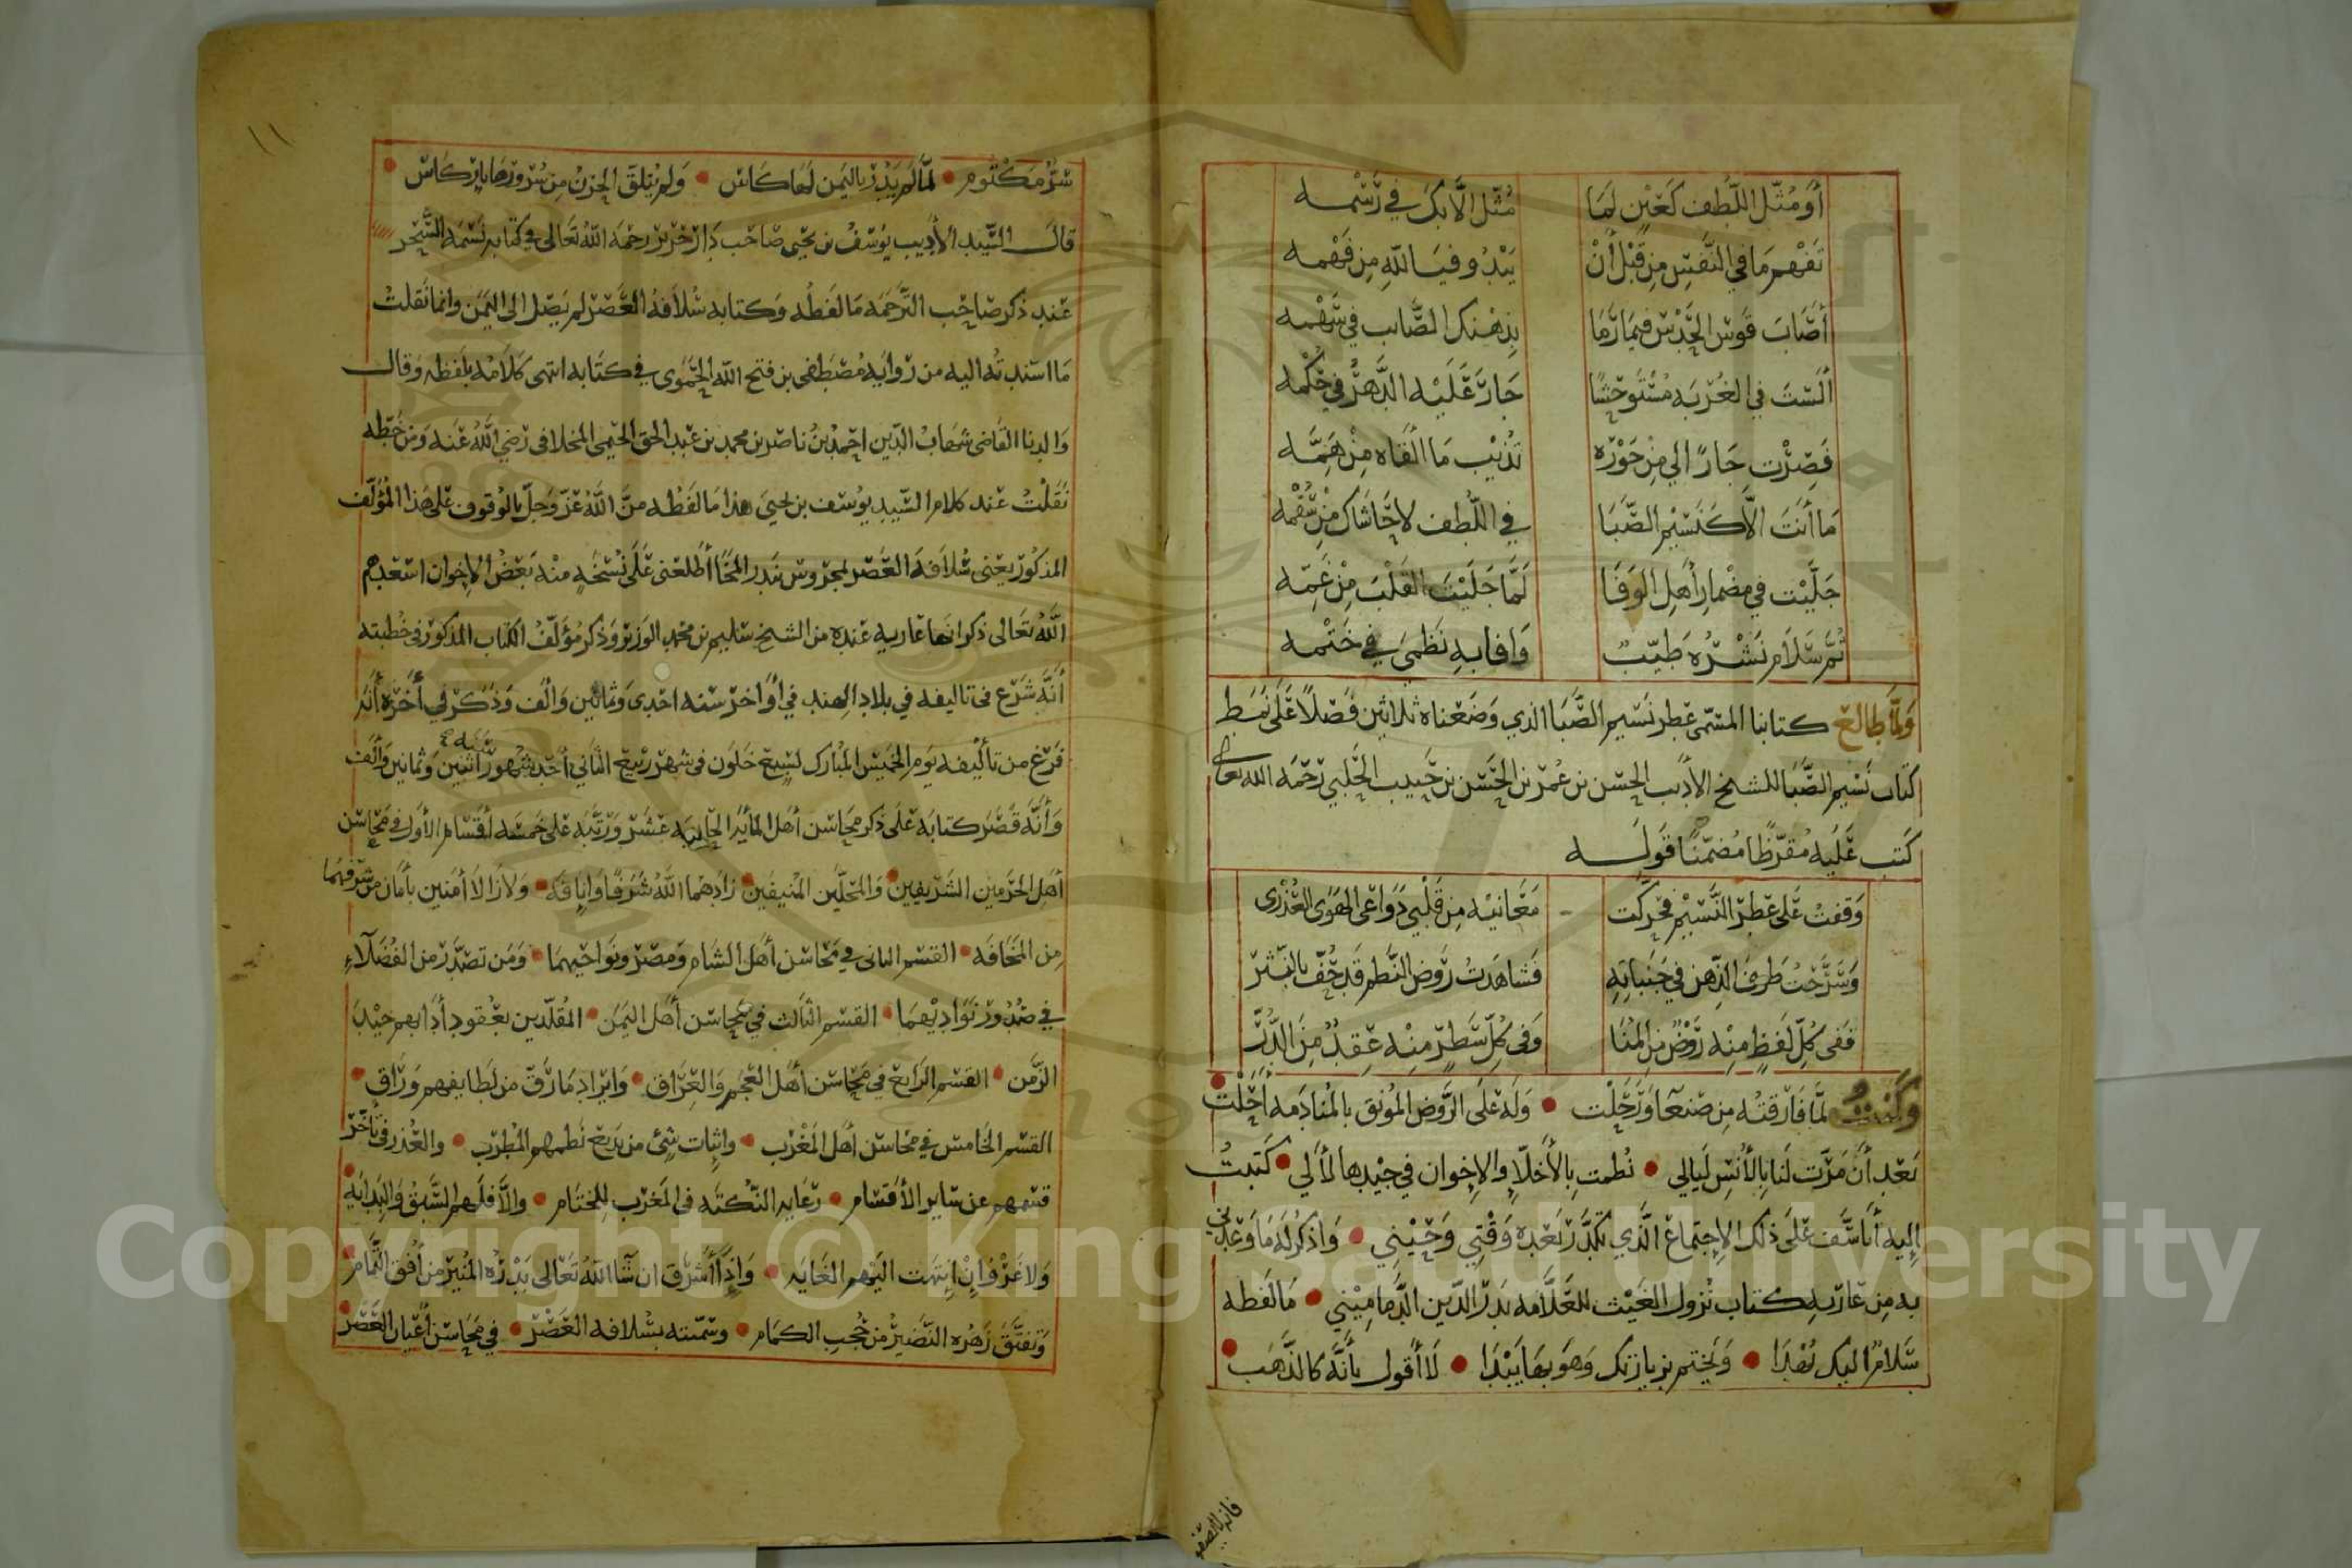 أو مثل اللطف كعين لما مثل الابك في رسمه
تفهم ما في النفس من قبل أن يبدو فيا لله من فهمه
أصاب قوس الحدس فيما رما بذهنك الصائب في سهمه
ألست في الغربة مستوحشا جار عليه الدهر في حكمه
فصرت جارا لي من جوره تذيب ما ألقاه من همه
ما أنت الا كنسيم الصبا في اللطف لا حاشاك من سقمه
جليت في مضمار أهل الوفا لما جليت القلب من غمه
ثم سلام نشره طيب وافا به نظمي في ختمه
ولما طالع كتابنا المسمى عطر نسيم الصبا الذي وضعناه ثلاثين فصلا على نمط
كتاب نسيم الصبا للشيخ الأديب الحسن بن عمر بن الحسن بن حبيب الحلبي رحمه الله تعالى
كتب عليه مقرظا مضمنا قوله
وقفت على عطر النسيم فحركت معانيه من قلبي دواعي الهوى العذري
وسرحت طرف الذهن في جنباته فشاهدت روض النظم قد حف بالنثر
ففي كل لفظ منه روض من المنا وفي كل سطر منه عقد من الدر
وكنت لما فارقته من صنعا ورحلت • وله على الروض المونق بالمنادمه أحلت
بعد أن مرت لنا بالأنس ليالي • نظمت بالأخلاء والإخوان في جيدها لألي • كتبت
إليه أتأسف على ذلك الإجتماع الذي تكدر بعده وقتي وحيني • واذكر له ما وعدني
به من عارية كتاب نزول الغيث للعلامه بدر الدين الدماميني • ما لفظه
سلام اليك يهدا • ويختم بزيارتك وهو بها يبدا • لا أقول بأنه كالذهب •
١١
سر مكتوم • لما لم يدر باليمن لها كاس • ولم يتلق الحزن من سرورها باركاس •
قال السيد الأديب يوسف بن يحيى صاحب رحمه الله تعالى في كتابه نسمة السحر
عند ذكر صاحب الترجمه ما لفظه وكتابه سلافة العصر لم يصل الى اليمن وانما نقلت
ما اسندته اليه من رواية مصطفى بن فتح الله الحموي في كتابه انتهى كلامه بلفظه وقال
والدنا القاضي شهاب الدين احمد بن ناصر بن محمد بن عبد الحق الحيمي المخلافي رضي الله عنه ومن خطه
نقلت عند كلام السيد يوسف بن يحيى هذا ما لفظه من الله عز وجل بالوقوف على هذا المؤلف
المذكور يعني سلافة العصر بمحروس بندر المخا أطلعني على نسخة منه بعض الاخوان اسعدهم
الله تعالى ذكر انها عارية عنده من الشيخ سليم بن محمد الوزير وذكر مؤلف الكتاب المذكور في خطبته
أنه شرع في تاليفه في بلاد الهند في أواخر سنه احدى وثمانين وألف وذكر في أخره أنه
فرغ من تأليفه يوم الخميس المبارك لسبع خلون في شهر ربيع الثاني أحد شهور سنة اثنين وثمانين وألف
وأنه قصر كتابه على ذكر محاسن أهل المأية الحادية عشر ورتبه على خمسه أقسام الأول في محاسن
أهل الحرمين الشريفين • والمحلين المنيفين • زادهما الله شرفا وانافه • ولا زالا أمنين بأمان من شرفهما
من المخافه • القسم الثاني في محاسن أهل الشام ومصر ونواحيهما • ومن تصدر من الفضلاء
في صدور نواديهما • القسم الثالث في محاسن أهل اليمن • المقلدين بعقود أدابهم جيد
الزمن • القسم الرابع في محاسن أهل العجم والعراق • وايراد ما رق من لطايفهم وراق •
القسم الخامس في محاسن أهل المغرب • واثبات شيء من بديع نظمهم المطرب • والعذر في تأخر
قسمهم عن ساير الأقسام • رعاية النكته في المغرب للختام • والا فلهم السبق والبدايه •
ولا غرو إن انتهت اليهم الغايه • وإذا أشرق ان شا الله تعالى بدره المنير من أفق التمام •
وتفتق زهره النضير من حجب الكمام • وسمته بسلافه العصر • في محاسن أعيان العصر •